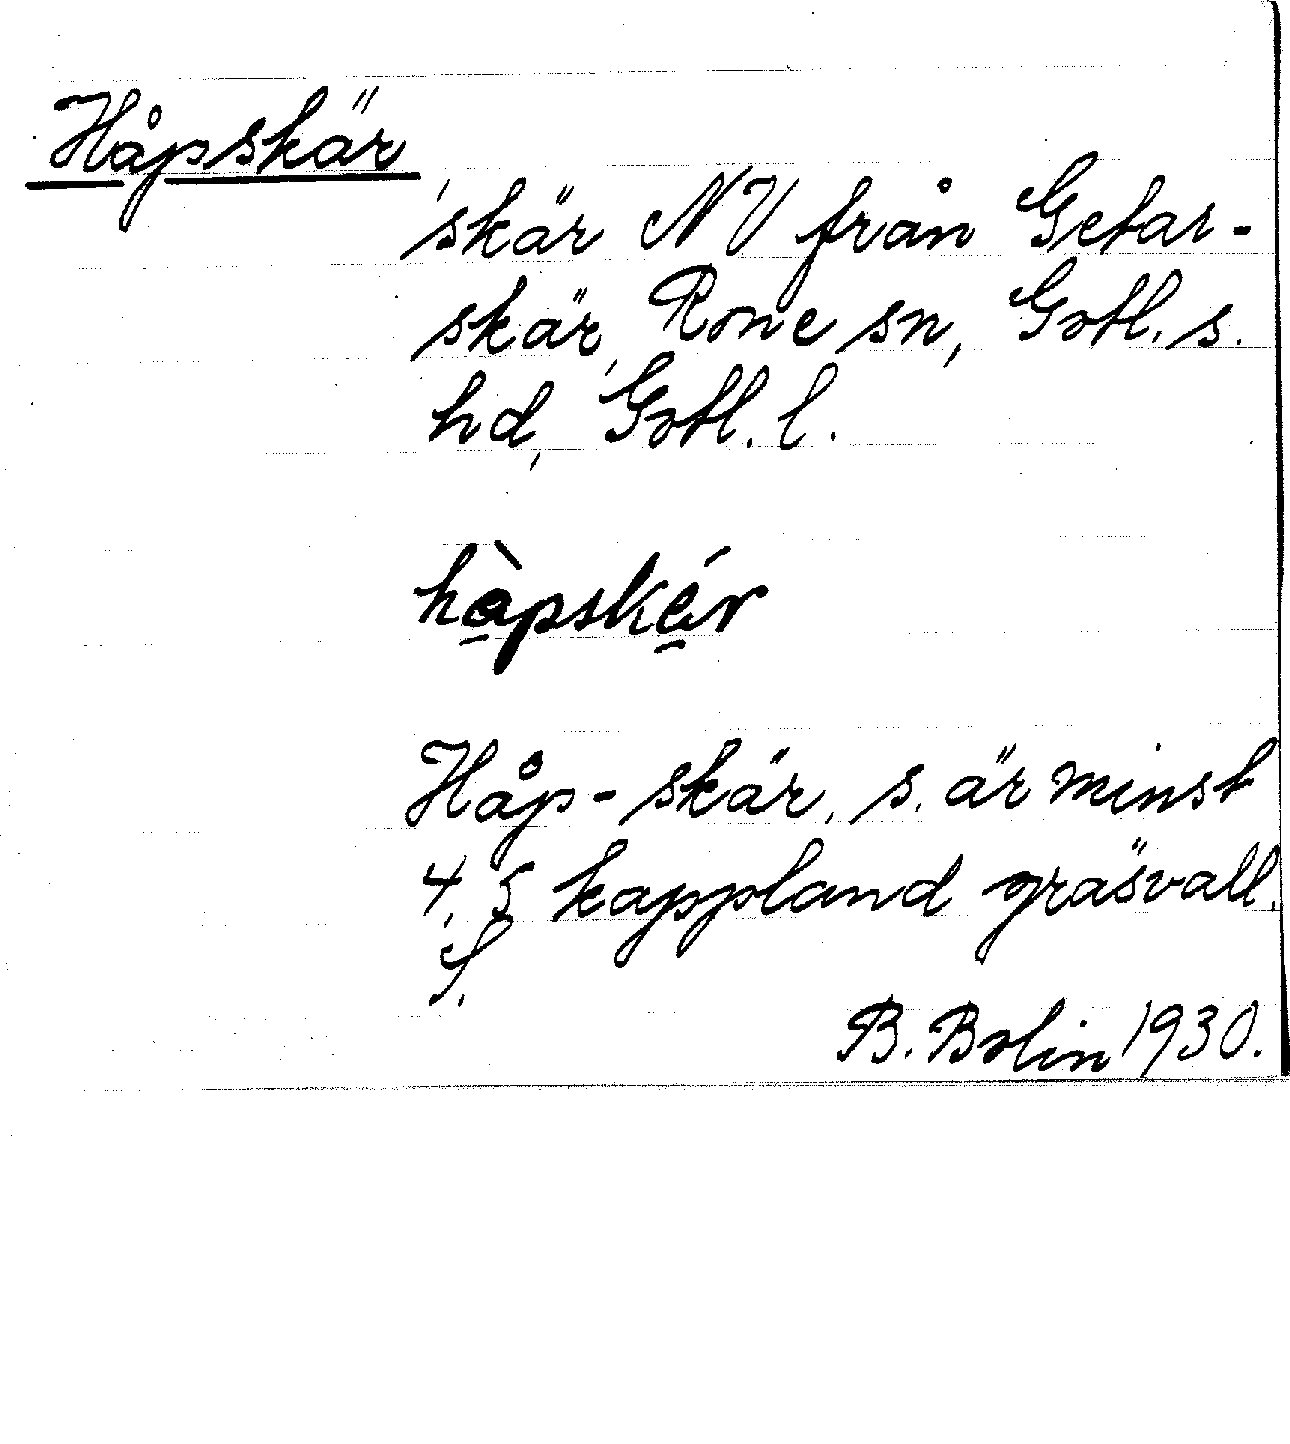 Håpskär
skär NV från Getar-
skär, Rone sn, Gotl. s.
hd, Gotl. l.
hàpskér
Håp-skär, s. är minst
4, 5 kappland gräsvall.
S.
B. Bolin 1930.